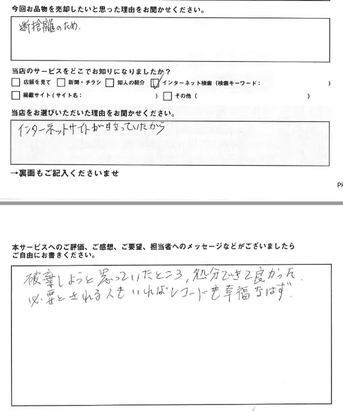 今回お品物を売却したいと思った理由をお聞かせください。
断捨離のため.
当店のサービスをどこでお知りになりましたか？
□ 店舗を見て □ 新聞・チラシ □ 知人の紹介 ☑ インターネット検索 (検索キーワード： )
□ 掲載サイト(サイト名： ) □ その他 ( )
当店をお選びいただいた理由をお聞かせください。
インターネットサイトが
→裏面もご記入くださいませ
本サービスへのご評価、ご感想、ご要望、担当者へのメッセージなどがございましたら
ご自由にお書きください。
破棄しようと思っていたところ,処分できて良かった.
必要とされる人もいればレコードも幸福なはず.